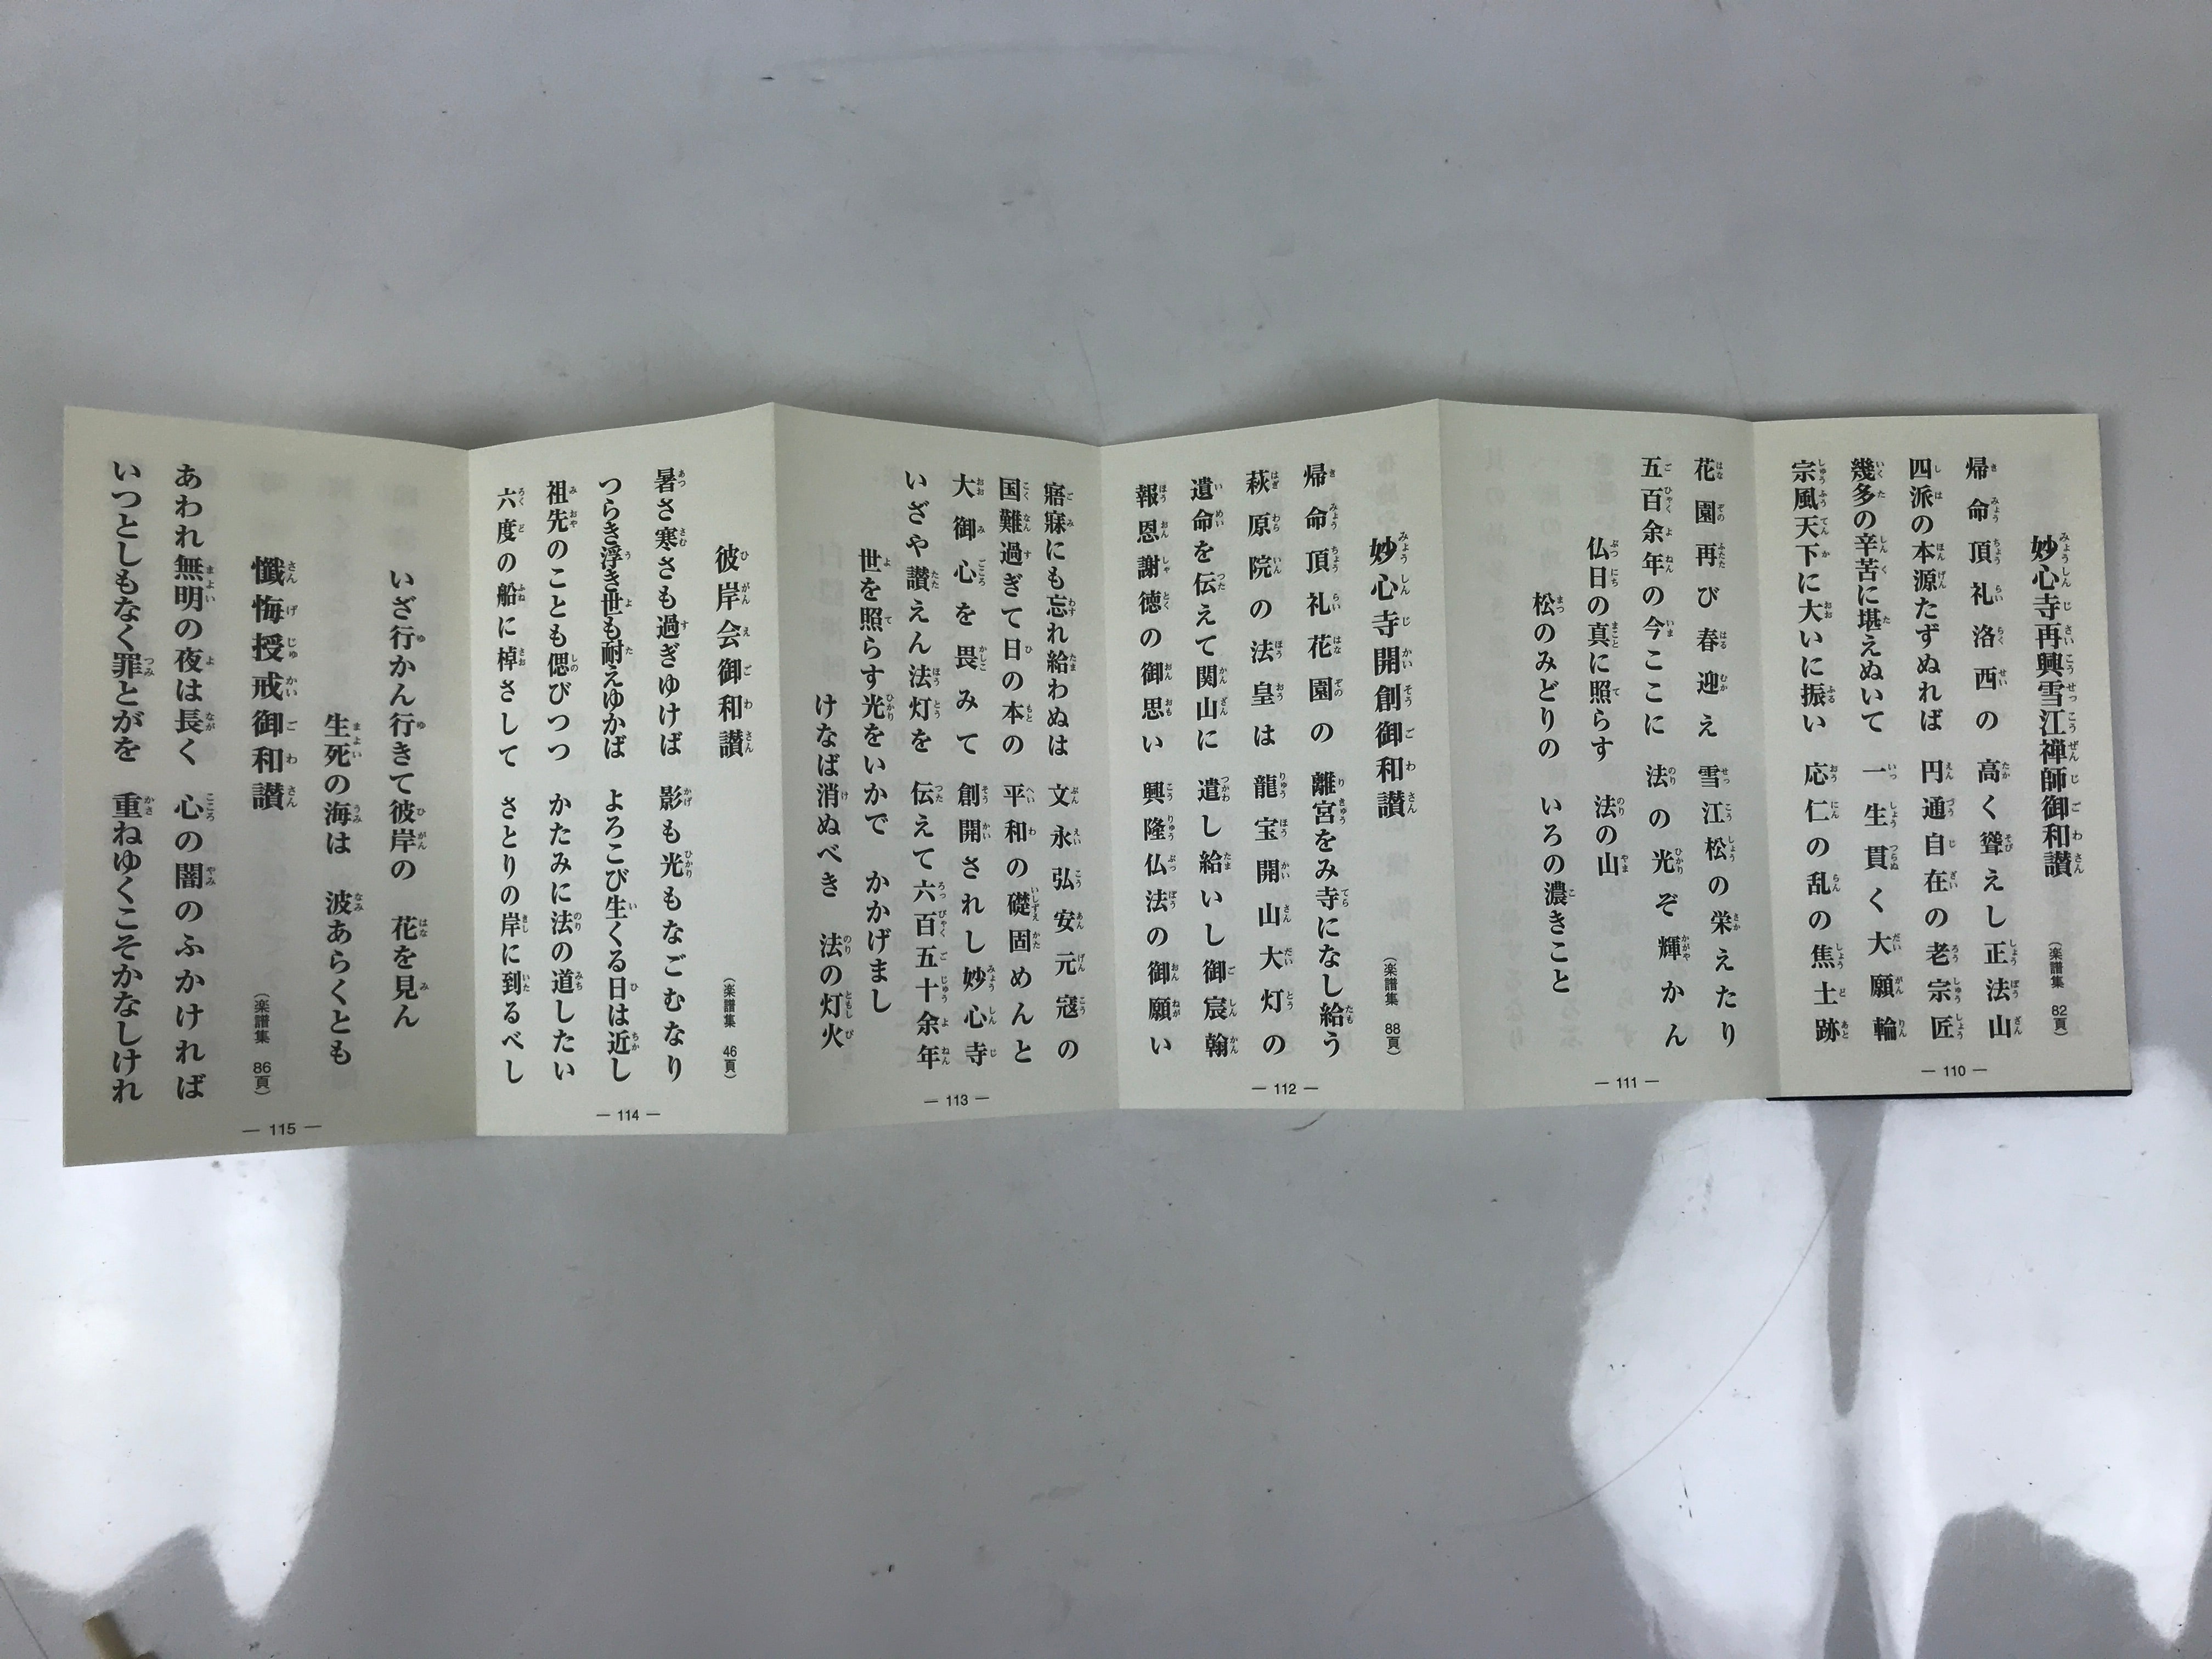 妙心寺再興雪江禅師御和讃 （楽譜集 82頁）
帰命頂礼洛西の 高く聳えし正法山
四派の本源たずぬれば 円通自在の老宗匠
幾多の辛苦に堪えぬいて 一生貫く大願輪
宗風天下に大いに振い 応仁の乱の焦土跡
― 110 ―
花園再び春迎え 雪江松の栄えたり
五百余年の今ここに 法の光ぞ輝かん
仏日の真に照らす 法の山
松のみどりの いろの濃きこと
― 111 ―
妙心寺開創御和讃 （楽譜集 88頁）
帰命頂礼花園の 離宮をみ寺になし給う
萩原院の法皇は 龍宝開山大灯の
遺命を伝えて関山に 遣し給いし御宸翰
報恩謝徳の御思い 興隆仏法の御願い
― 112 ―
寤寐にも忘れ給わぬは 文永弘安元寇の
国難過ぎて日の本の 平和の礎固めんと
大御心を畏みて 創開されし妙心寺
いざや讃えん法灯を 伝えて六百五十余年
世を照らす光をいかで かかげまし
けなば消ぬべき 法の灯火
― 113 ―
彼岸会御和讃 （楽譜集 46頁）
暑さ寒さも過ぎゆけば 影も光もなごむなり
つらき浮き世も耐えゆかば よろこび生くる日は近し
祖先のことも偲びつつ かたみに法の道したい
六度の船に棹さして さとりの岸に到るべし
― 114 ―
いざ行かん行きて彼岸の 花を見ん
生死の海は 波あらくとも
懺悔授戒御和讃 （楽譜集 86頁）
あわれ無明の夜は長く 心の闇のふかければ
いつとしもなく罪とがを 重ねゆくこそかなしけれ
― 115 ―